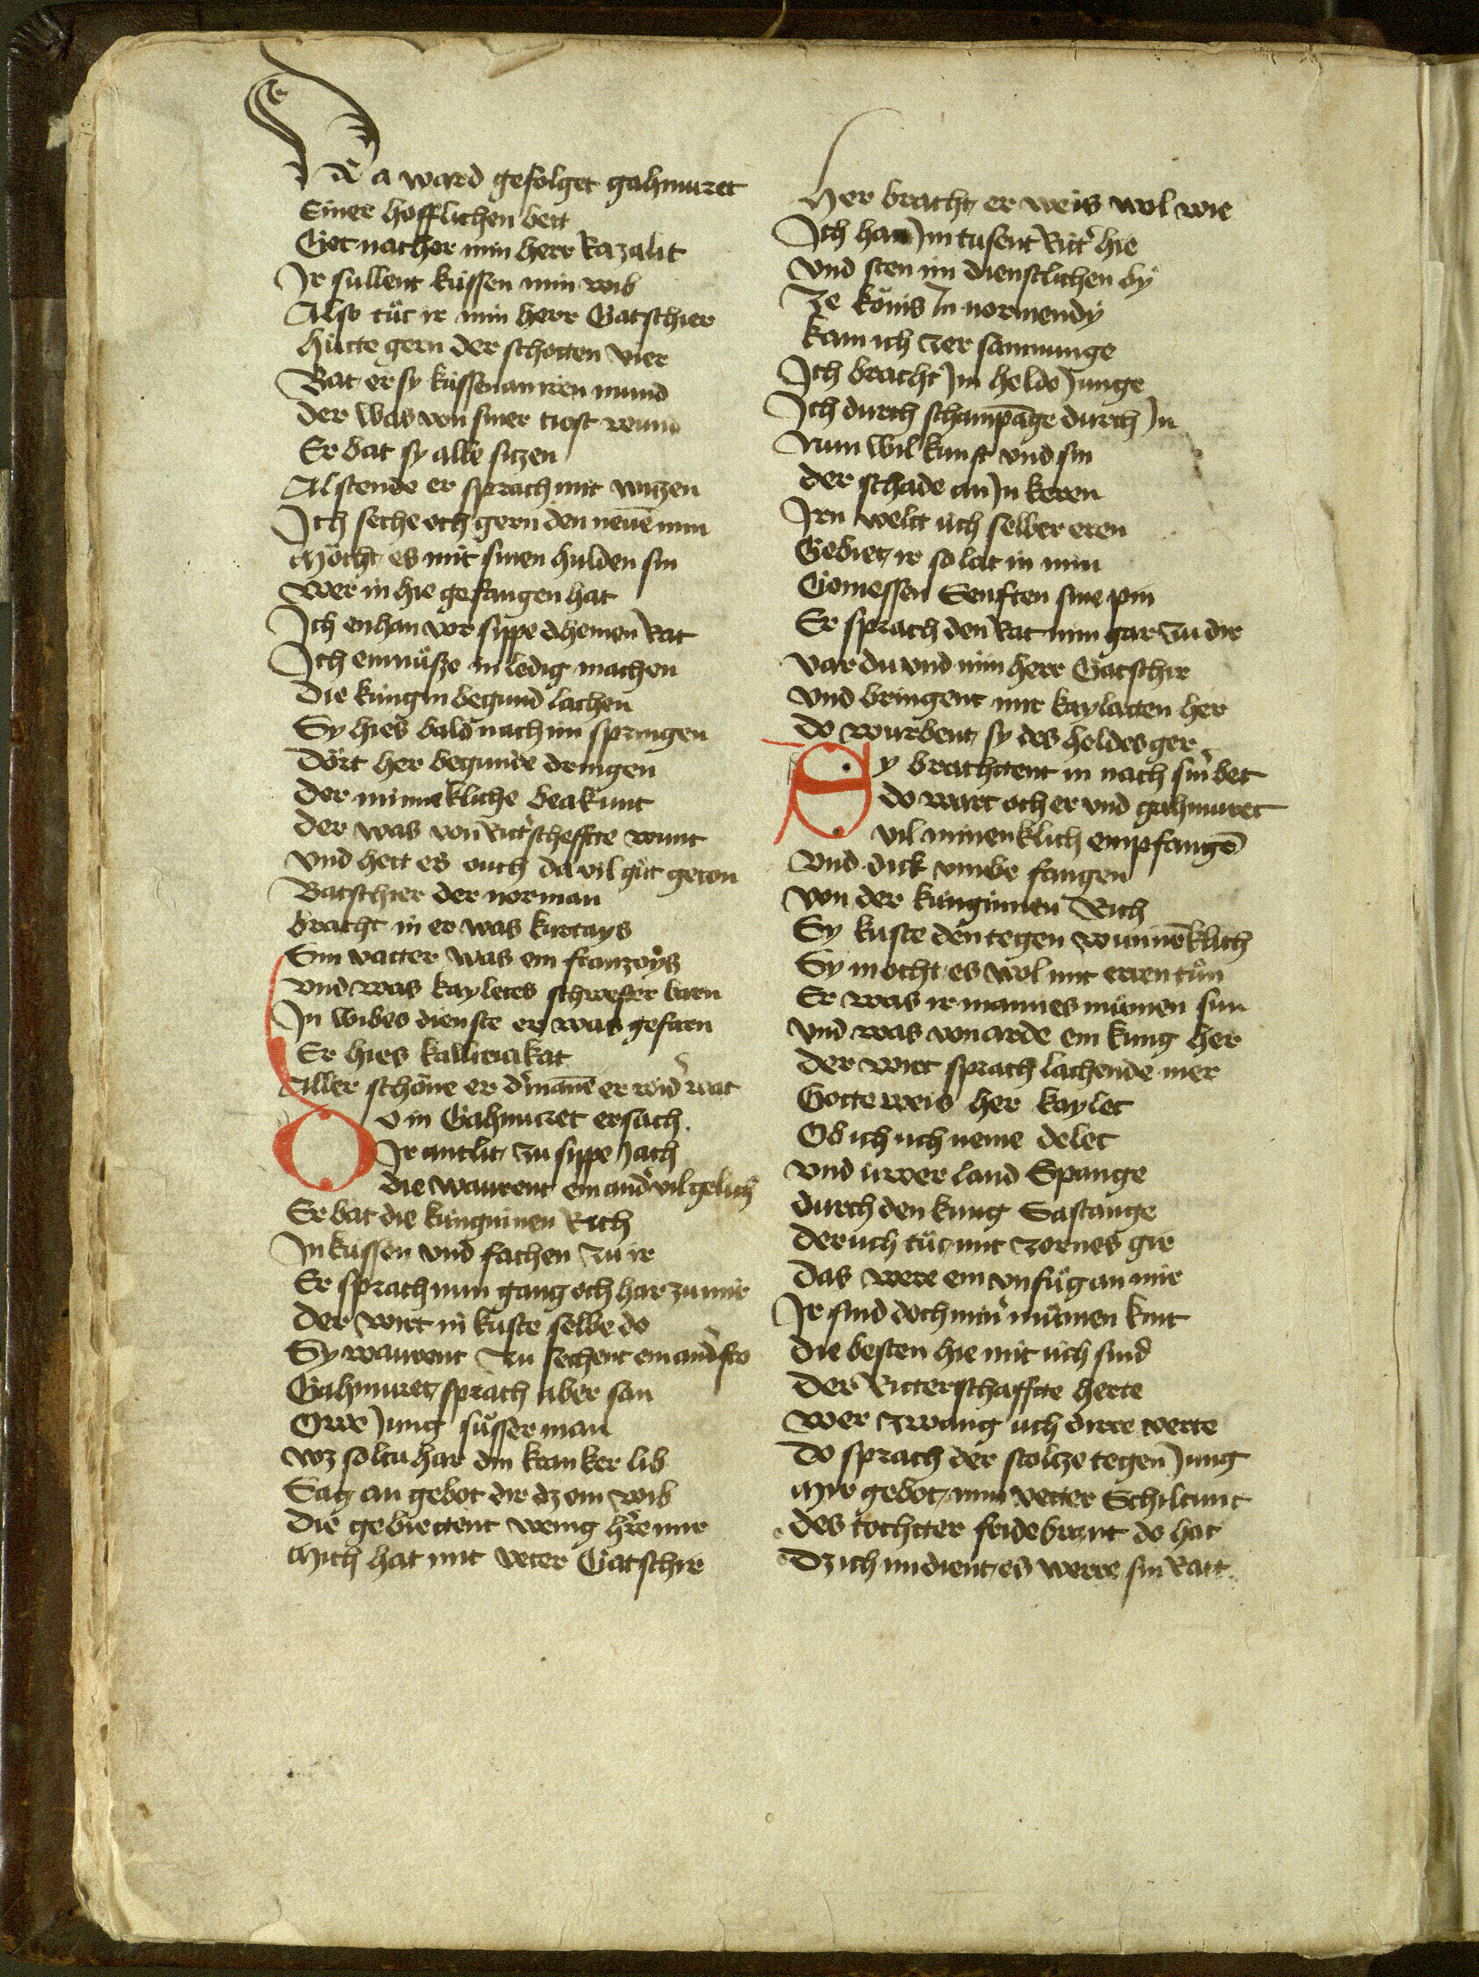 Da ward gefolget gahmuret
Einer hofflichen bett
Get nacher min herr Razalit
Ir sullent küssen min wib
Also tůt ir min herr Gatschier
hütte gern der schotten vier
Bat er sy küssen an iren mund
der was von siner tiost wund
Er bat sy alle sitzen
Al stende er sprach mit witzen
Ich seche och gern den neuen min
Möcht es mit sinen hulden sin
wer in hie gefangen hat
Ich enhan vor sippe dheinen Rat
Ich enmüsze in ledig machen
Die küngin begund lachen
Sy hies bald nach im springen
Dört her begunde dringen
Der minnekliche beakunt
der was von Ritterscheffte wunt
vnd hett es ouch da vil gůt geton
Gatschier der norman
bracht in er was kurtays
Sin vatter was ein franzoys
vnd was kayletes schwester barn
In wibes dienste er was gefarn
Er hies killirickat
Aller schöne er der manne er wider wat
Do in Gahmuret ersach
Ir antlit zu sippe Jach
die warent ein ander vil gelich
Er bat die künginnen Rich
In küssen vnd fachen zu ir
Er sprach nun gang och har zu mir
Der wirt in kuste selbe do
Sy warent zu sechent ein ander fro
Gahmuret sprach aber san
Owe Jung süsser man
wz solt har din kranker lib
Sag an gebot dir dz ein wib
Die gebiettent wenig herre mir
Mich hat mit veter Gatschir
Her bracht er weis wol wie
Ich han Im tusent Ritter hie
vnd sten im dienstlichen by
Ze könis In normendy
kam ich zer samnunge
Ich bracht Im helde Junge
Ich durch schampange durch In
Nun wil kunst vnd sin
der schade an In keren
Irn welt üch selber eren
Gebiet ir so lat in min
Geniessen Senften sine pin
Er sprach den Rat nim gar zu dir
var du vnd min herr Gatschir
vnd bringent mir kayletten her
do wurbent sy des heldes ger
Sy brachttent in nach sin bet
do wart och er vnd gahmuret
vil minenklich empfangen
vnd dick vmbe fangen
von der künginnen Rich
Sy kuste den tegen wuninenklich
Sy mocht es wol mit eren tůn
Er was ir mannes můmen sun
vnd was von arde ein küng her
Der wirt sprach lachende mer
Gotte weis her kaylet
Ob ich üch neme delet
vnd üwer land Spange
durch den küng Gastange
der üch tůt mit zornes gir
Das were ein vnfůg an mir
Ir sind doch miner můmen kint
die besten hie mit üch sind
Der Ritterschaffte herte
wer zwang üch dirre verte
Do sprach der stoltze tegen Jung
Mir gebot min vetter Schiltunt
des tochtter fridebrant do hat
Dz ich im dient es werre sin Ratt